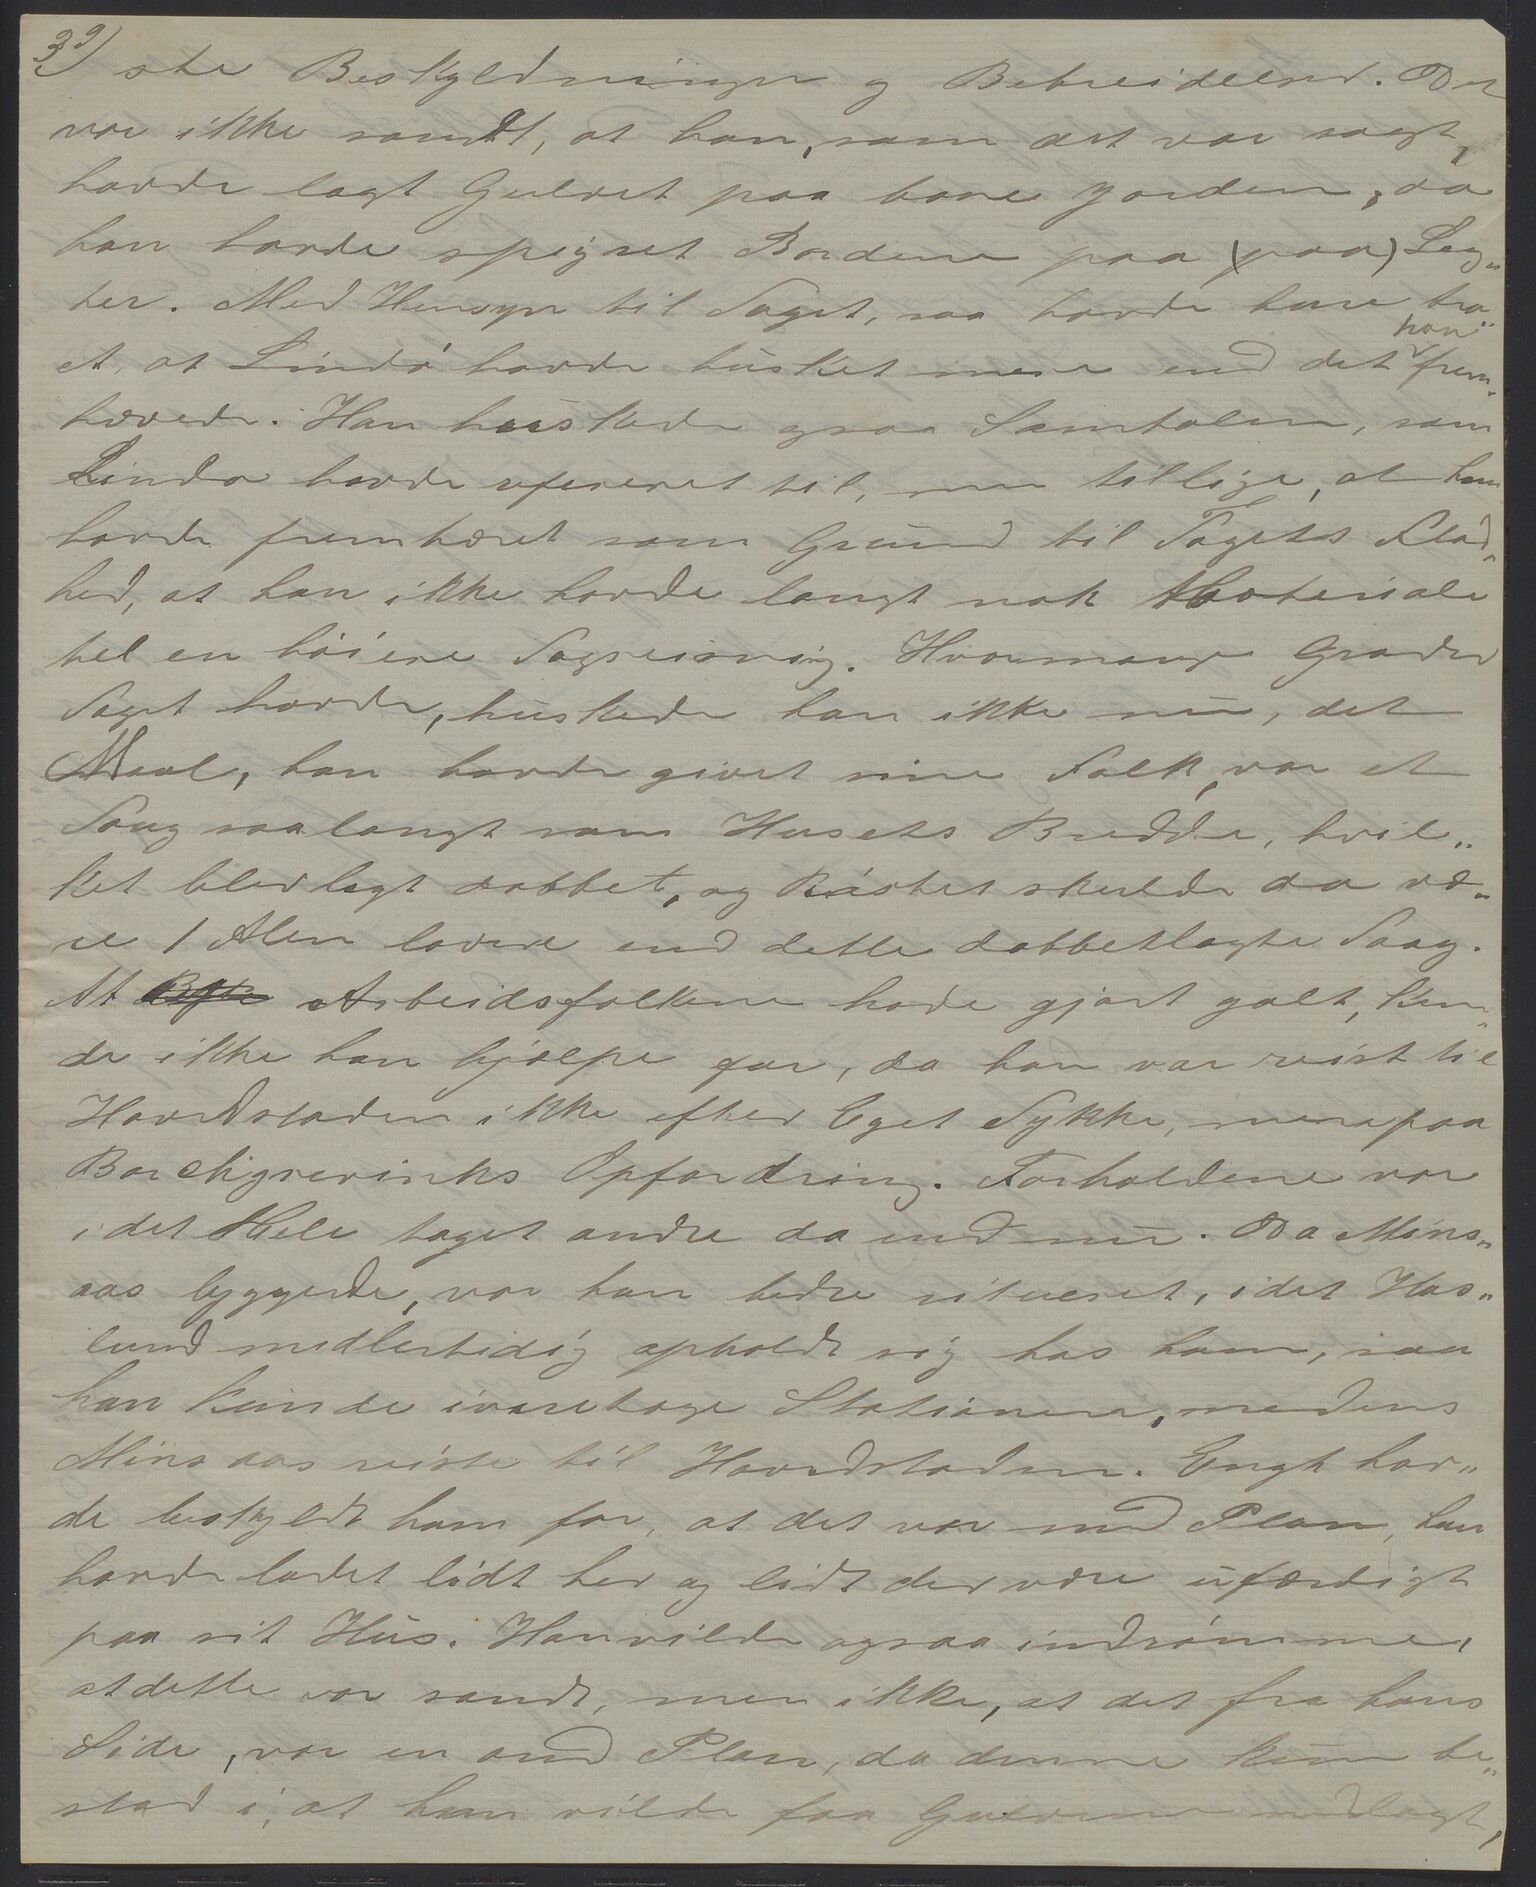 39) ste Beskyldninger og Bebreidelser. Det
var ikke sandt, at han, som det var sagt,
havde lagt Gulvet paa bare Jorden, da
han havde spigret Bordene paa (paa) Leg„
ter. Med Hensyn til Taget, saa havde han tro„
et, at Lindø havde husket mere end det han frem„
hævede. Han huskede ogsaa Samtalen, som
Lindø havde refereret til, men tillige, at han
havde fremhævet som Grund til Tagets Flad„
hed, at han ikke havde langt nok Materiale
til en høiere Tagreisning. Hvormange Grader
Taget havde, huskede han ikke nu, det
Maal, han havde givet sine Folk, var et
Taug saa langt som Husets Bredde, hvil„
ket blev lagt dobbet, og Røstet skulde da væ„
re 1 Alen lavere end dette dobbetlagte Taug.
At Arbeidsfolkene havde gjort galt, kun„
de ikke han hjælpe for, da han var reist til
Hovedstaden ikke efter Eget Tykke, men paa
Borchgrevinks Opfordring. Forholdene var
i det Hele taget andre da end nu. Da Mins„
aas byggede, var han bedre situeret, idet Has„
lund midlertidig opholdt sig hos ham, saa
han kunde ivaretage Stationen, medens
Minsaas reiste til Hovedstaden. Engh hav„
de beskyldt ham for, at det var med Plan, han
havde ladet lidt her og lidt der være ufærdigt
paa sit Hus. Han vilde ogsaa indrømme,
at dette var sandt, men ikke, at det fra hans
Side, var en ond Plan, da denne kun be„
stod i, at han vilde faa Gulvene nedlagt,